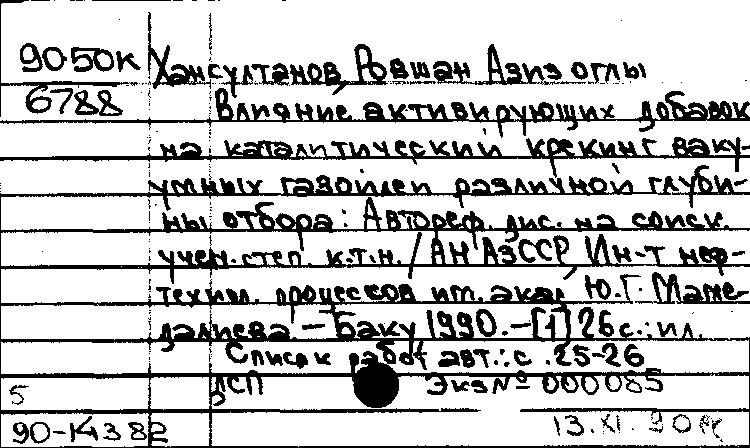 90-50к Хансултанов, Ровшан Азиз оглы
6788 Влияние активирующих добавок
на каталитический крекинг ваку-
умных газойлей различной глуби-
ны отбора: Автореф. дис. на соиск.
учен. степ. к.т.н. / АН АзССР, Ин-т неф-
техим. процессов им. акад. Ю.Г. Маме-
далиева. - Баку, 1990. - [1] 26 с.: ил.
Список работ авт.: с. 25-26
5 ДСП Экз № 000085
90-14382 13.XI.90